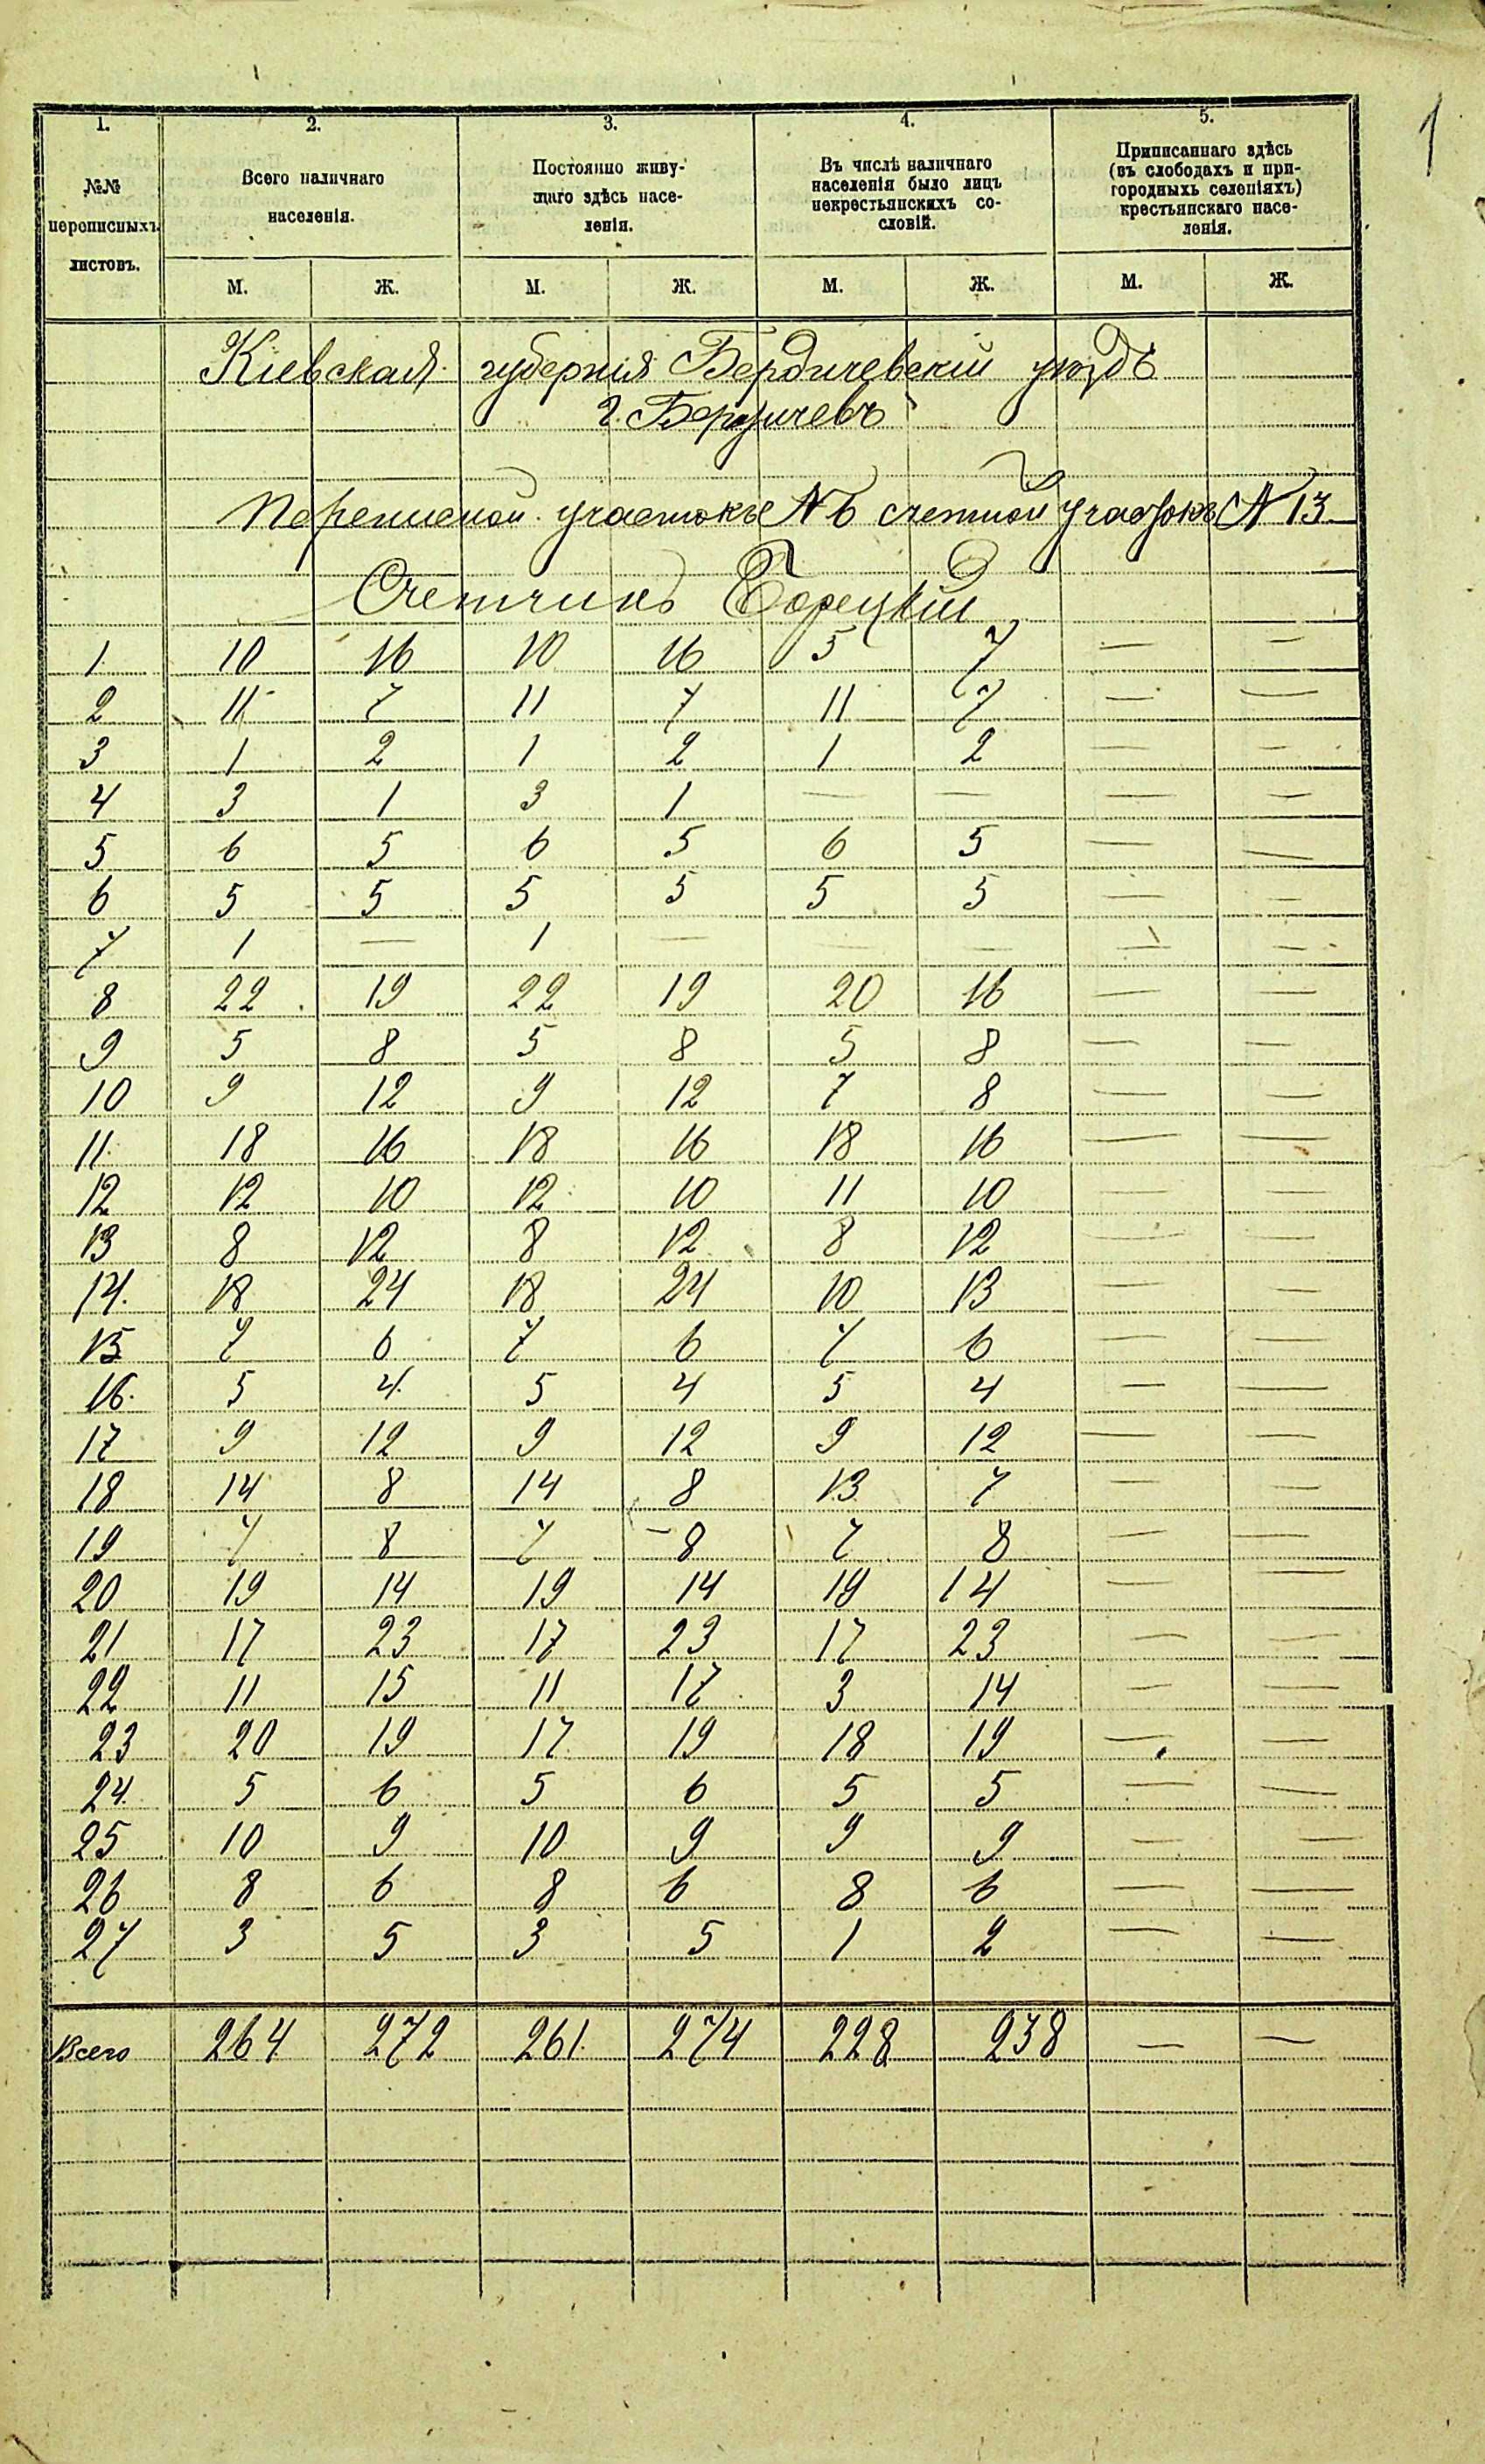 1
1. 2. 3. 4. 5.
№№ переписныхъ листовъ.
Всего наличнаго населенія.
Постоянно живущаго здѣсь населенія.
Въ числѣ наличнаго населенія было лицъ некрестьянскихъ сословій.
Приписаннаго здѣсь (въ слободахъ и пригородныхъ селеніяхъ) крестьянскаго населенія.
М. Ж. М. Ж. М. Ж. М. Ж.
Кіевская губернія Бердичевскій уѣздъ
г. Бердичевъ
Переписной участокъ № 6 счетной участокъ № 13
Счетчикъ Борецкій
1 10 16 10 16 5 7 — —
2 11 7 11 7 11 7 — —
3 1 2 1 2 1 2 — —
4 3 1 3 1 — — — —
5 6 5 6 5 6 5 — —
6 5 5 5 5 5 5 — —
7 1 — 1 — — — — —
8 22 19 22 19 20 16 — —
9 5 8 5 8 5 8 — —
10 9 12 9 12 7 8 — —
11 18 16 18 16 18 16 — —
12 12 10 12 10 11 10 — —
13 8 12 8 12 8 12 — —
14. 18 24 18 24 10 13 — —
15 7 6 7 6 7 6 — —
16. 5 4 5 4 5 4 — —
17 9 12 9 12 9 12 — —
18 14 8 14 8 13 7 — —
19 7 8 7 8 7 8 — —
20 19 14 19 14 19 14 — —
21 17 23 17 23 17 23 — —
22 11 15 11 17 3 14 — —
23 20 19 17 19 18 19 — —
24 5 6 5 6 5 5 — —
25 10 9 10 9 9 9 — —
26 8 6 8 6 8 6 — —
27 3 5 3 5 1 2 — —
Всего 264 272 261 274 228 238 — —